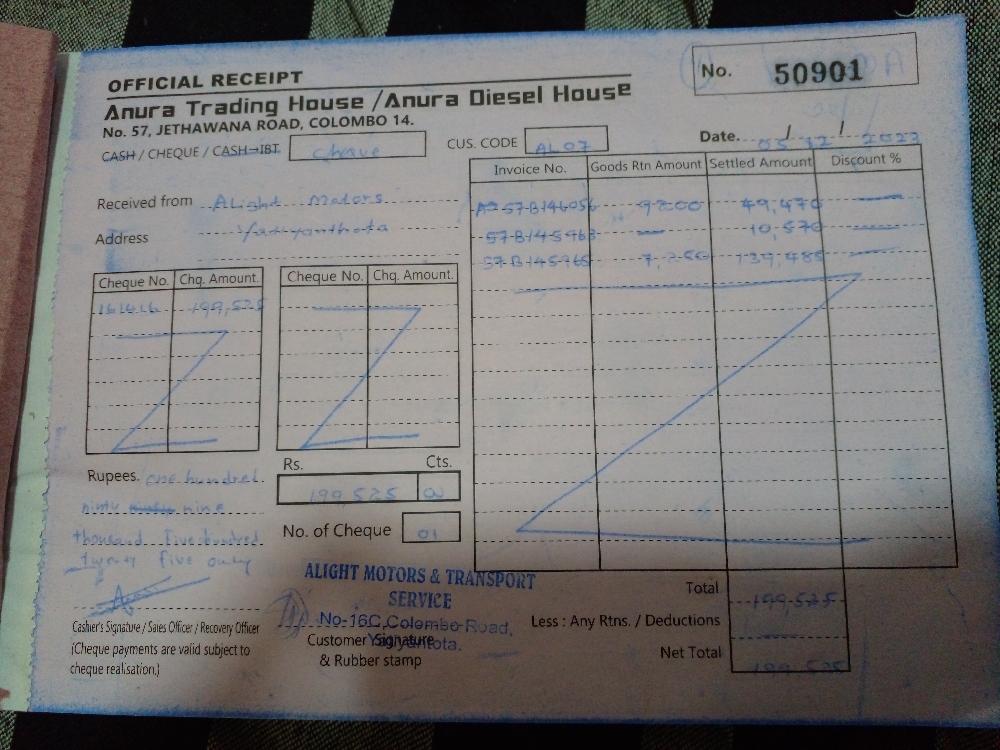 OFFICIAL RECEIPT
No. 50901
Anura Trading House / Anura Diesel House
No. 57, JETHAWANA ROAD, COLOMBO 14.
CASH / CHEQUE / CASH→IBT cheque
CUS. CODE AL07
Date. 05/12/2023
Received from Alight Motors
Address Yatiyanthota
Invoice No. Goods Rtn Amount Settled Amount Discount %
57-B146056 9200 49,470 —
57-B145963 — 10,570 —
57-B145965 7,250 139,485 —
Cheque No. Chq. Amount. Cheque No. Chq. Amount.
161616 199,525
Rupees. one hundred
ninty nine
thousand five hundred
twenty five only
Rs. Cts.
199,525 00
No. of Cheque 01
Cashier's Signature / Sales Officer / Recovery Officer
(Cheque payments are valid subject to
cheque realisation.)
ALIGHT MOTORS & TRANSPORT
SERVICE
No-16C, Colombo Road,
Yatiyantota.
Customer Signature
& Rubber stamp
Total 199,525
Less : Any Rtns. / Deductions
Net Total 199,525